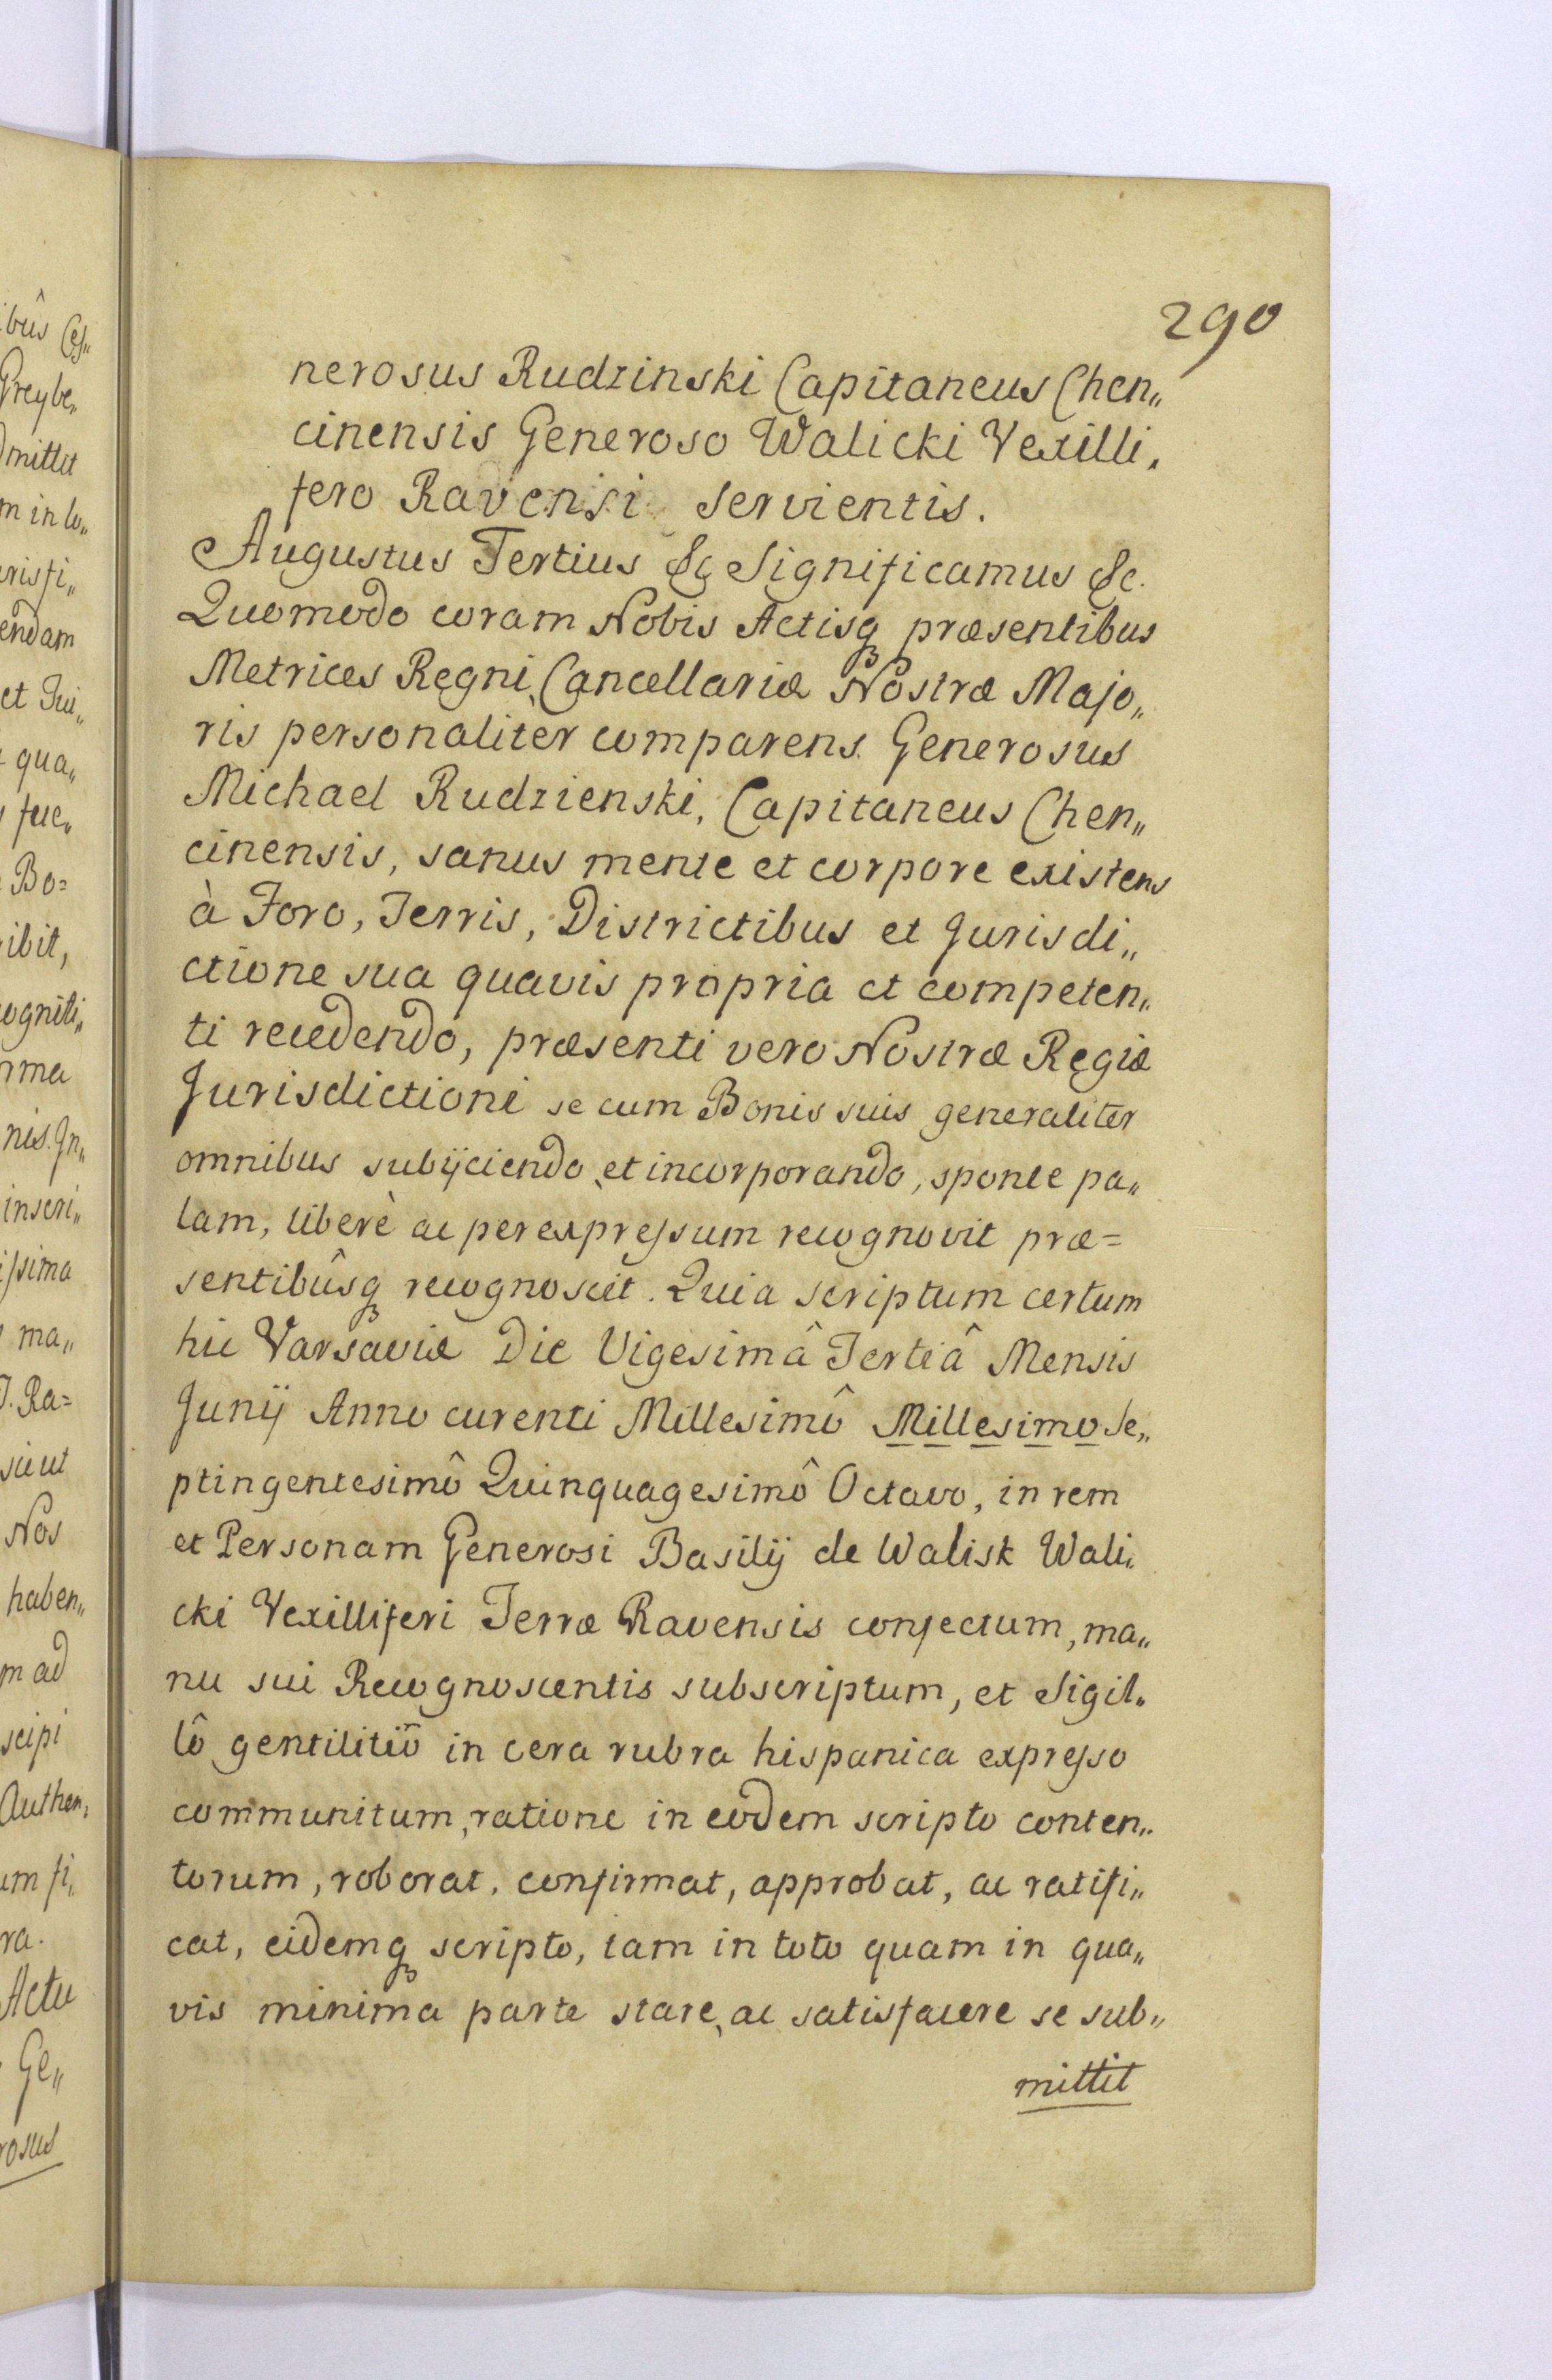 290
nerosus Rudzinski Capitaneus Chen„
cinensis Generoso Walicki Vexilli„
fero Ravensi servientis.
Augustus Tertius &c Significamus &c.
Quomodo coram Nobis Actisq3 præsentibus
Metrices Regni, Cancellariæ Nostræ Majo„
ris personaliter comparens Generosus
Michael Rudzienski, Capitaneus Chen„
cinensis, sanus mente et corpore existens
à Foro, Terris, Districtibus et Jurisdi„
ctione sua quavis propria et competen„
ti recedendo, præsenti vero Nostræ Regiæ
Jurisdictioni se cum Bonis suis generaliter
omnibus subijciendo, et incorporando, sponte pa„
lam, liberè ac per expressum recognovit præ=
sentibûsq3 recognoscit. Quia scriptum certum
hic Varsaviæ Die Vigesimâ Tertiâ Mensis
Junij Anno curenti Millesimô Millesimo Se„
ptingentesimô Quinquagesimô Octavo, in rem
et Personam Generosi Basilij de Walisk Wali„
cki Vexilliferi Terræ Ravensis confectum, ma„
nu sui Recognoscentis subscriptum, et Sigil„
lô gentilitiô in cera rubra hispanica expresso
communitum, ratione in eodem scripto conten„
torum, roborat, confirmat, approbat, ac ratifi„
cat, eidemq3 scripto, tam in toto quam in qua„
vis minima parte stare, ac satisfacere se sub„
mittit
ibûs Ces„
Greybe„
mittit
m in lo„
risfi„
endam
et Jui„
qua„
fue„
Bo=
ibit,
ogniti„
rma
nis. Jn„
inscri„
issima
ma„
T. Ra=
sicut
Nos
haben„
m ad
scipi
Authen„
um fi„
ra.
Actu
Ge„
rosus